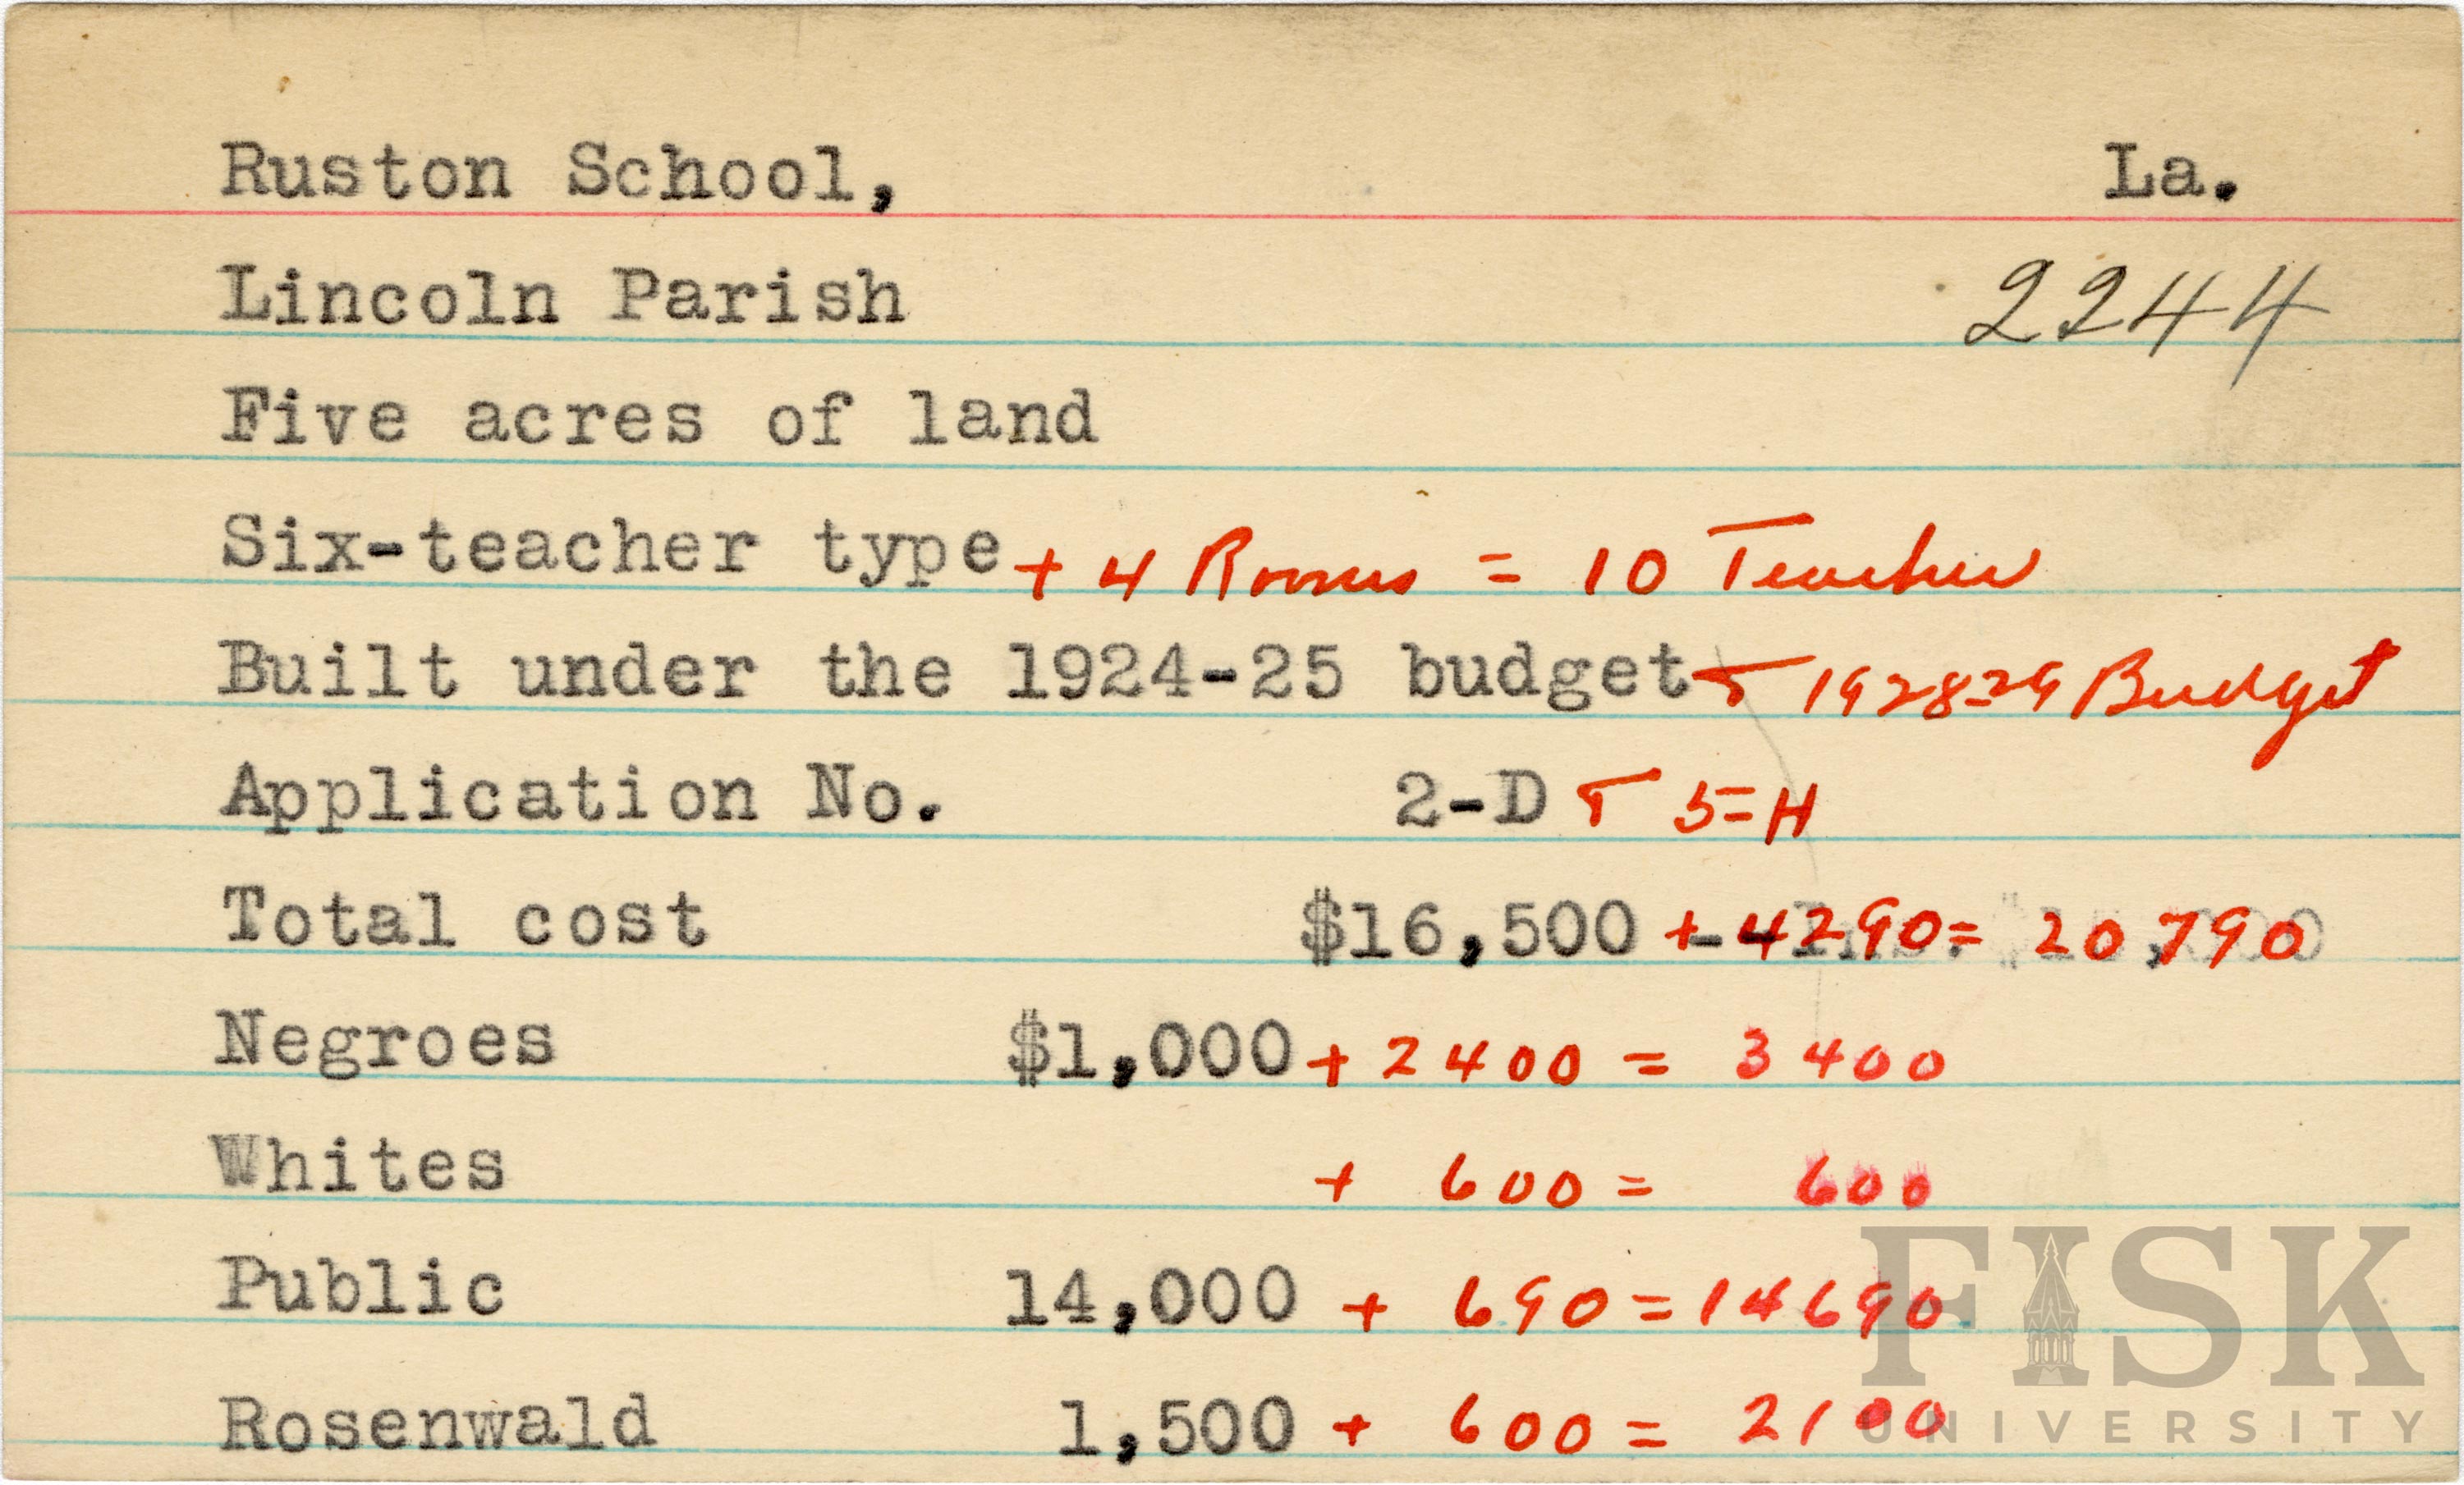 Ruston School, La.
Lincoln Parish 2244
Five acres of land
Six-teacher type + 4 Rooms = 10 Teacher
Built under the 1924-25 budget + 1928-29 Budget
Application No. 2-D + 5-H
Total cost $16,500 + 4290 = 20,790
Negroes $1,000 + 2400 = 3400
Whites + 600 = 600
Public 14,000 + 690 = 14690
Rosenwald 1,500 + 600 = 2100
FISK
UNIVERSITY